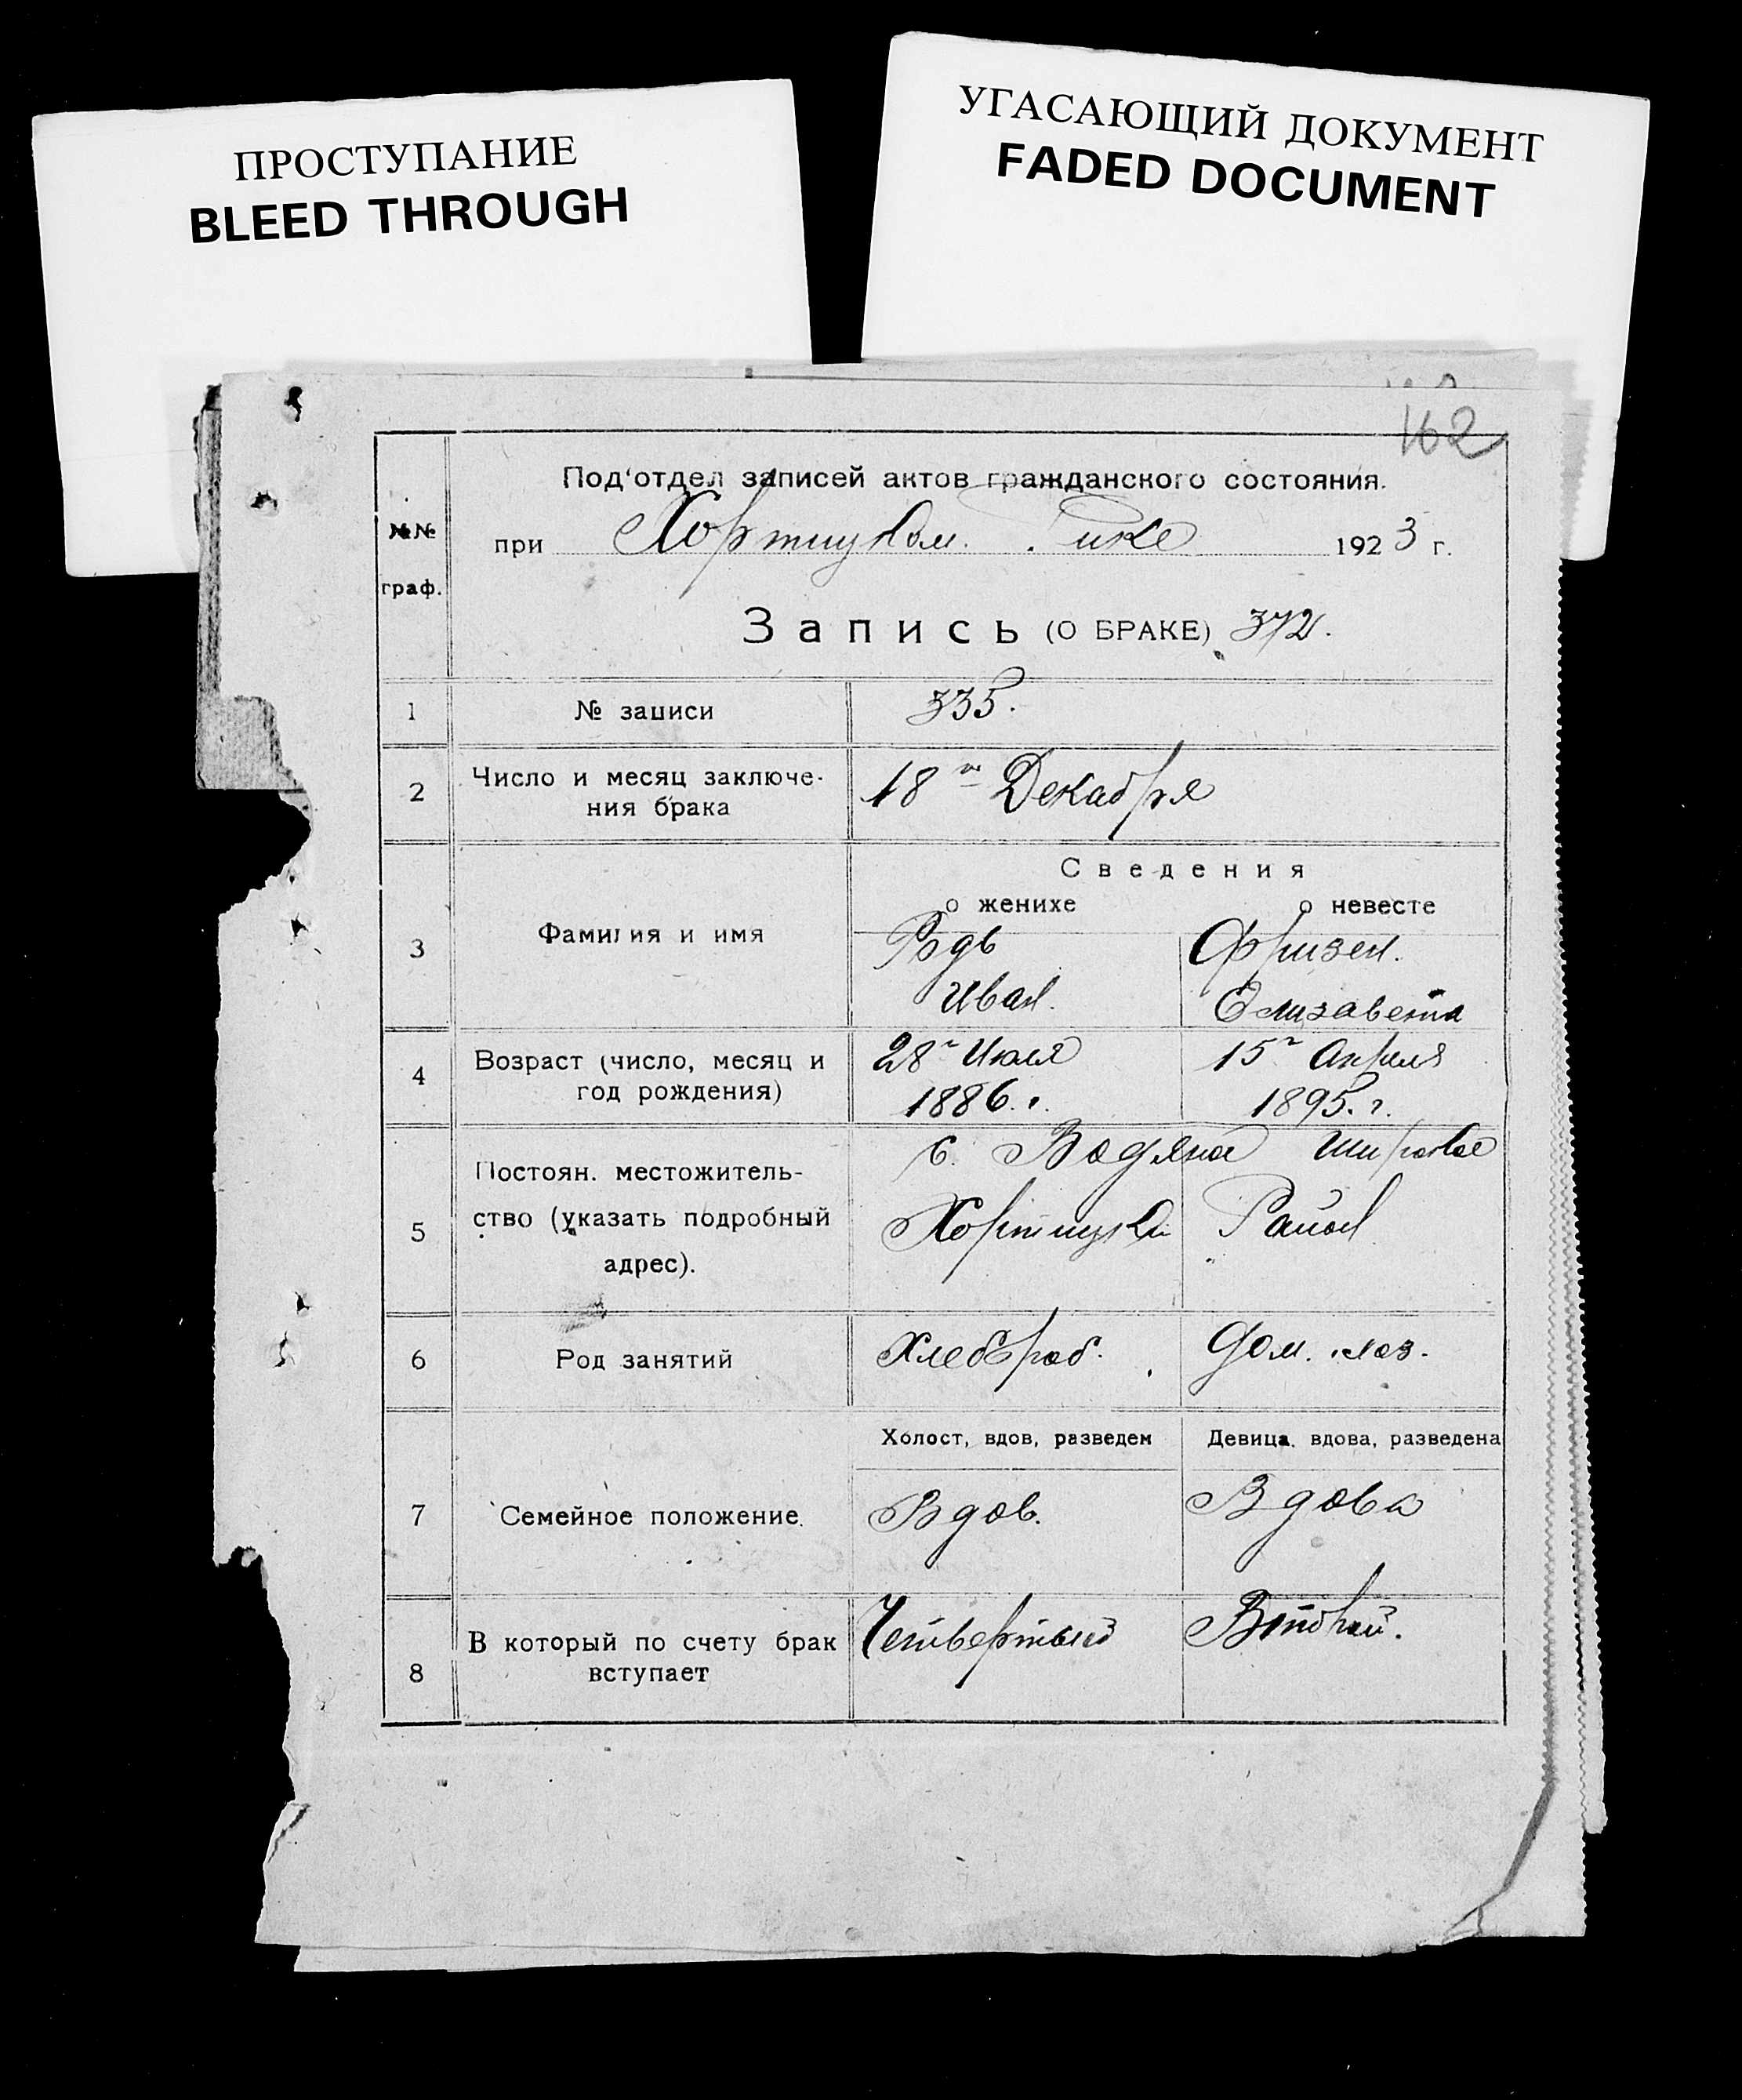 ПРОСТУПАНИЕ
BLEED THROUGH
УГАСАЮЩИЙ ДОКУМЕНТ
FADED DOCUMENT
162
№№ граф.
Под‘отдел записей актов гражданского состояния.
при Хортицком 1923 г.
Запись (О БРАКЕ) 372.
1 № записи 335.
2 Число и месяц заключе-
ния брака
18 Декабря
Сведения
о женихе о невесте
3 Фамилия и имя
Фризен.
Иван. Елизавета
4 Возраст (число, месяц и
год рождения)
28 Июля 15 Апреля
1886 г. 1895. г.
5 Постоян. местожитель-
ство (указать подробный
адрес).
с. Водяна
Район
6 Род занятий
Хлебороб. Дом. хоз.
Холост, вдов, разведем Девица, вдова, разведена
7 Семейное положение.
Вдов. Вдова
8 В который по счету брак
вступает
Четвертый Второй.